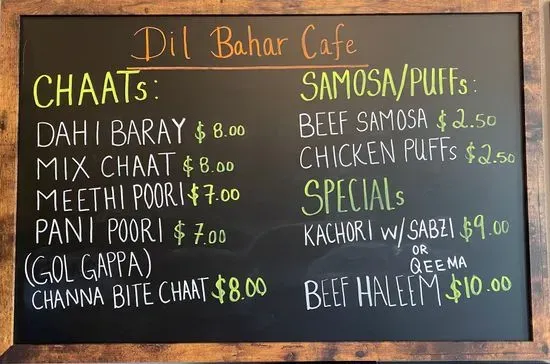 Dil Bahar Cafe
CHAATs:
DAHI BARAY $8.00
MIX CHAAT $8.00
MEETHI POORI $7.00
PANI POORI $7.00
(GOL GAPPA)
CHANNA BITE CHAAT $8.00
SAMOSA/PUFFs:
BEEF SAMOSA $2.50
CHICKEN PUFFs $2.50
SPECIALs
KACHORI W/SABZI $9.00
OR
QEEMA
BEEF HALEEM $10.00